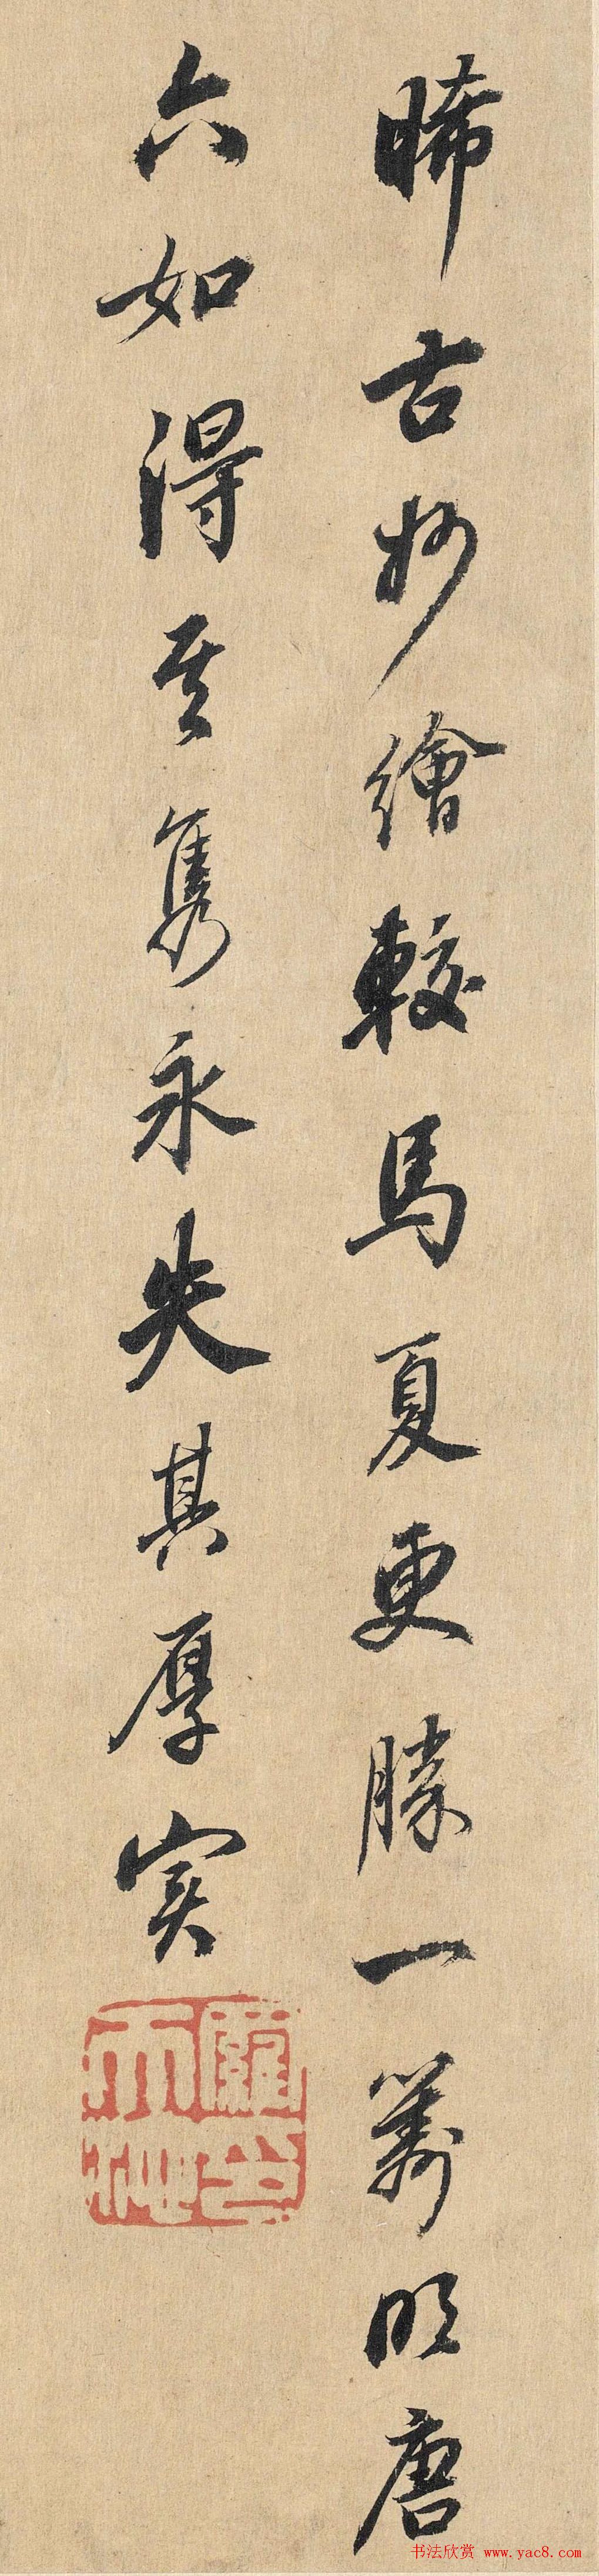 晞古妙繪較馬夏更勝一籌明唐
六如得其雋永失其厚實
书法欣赏 www.yac8.com